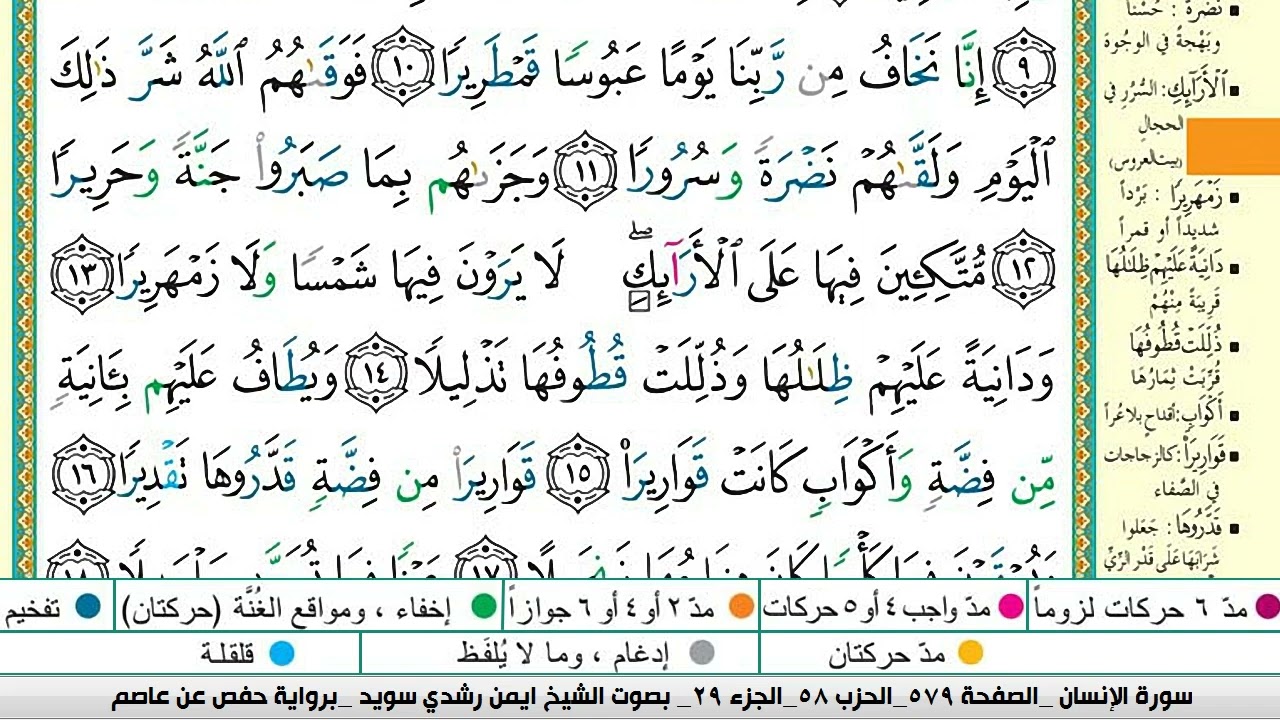 ۝٩ إِنَّا نَخَافُ مِن رَّبِّنَا يَوْمًا عَبُوسًا قَمْطَرِيرًا ۝١٠ فَوَقَىٰهُمُ ٱللَّهُ شَرَّ ذَٰلِكَ
ٱلْيَوْمِ وَلَقَّىٰهُمْ نَضْرَةً وَسُرُورًا ۝١١ وَجَزَىٰهُم بِمَا صَبَرُوا۟ جَنَّةً وَحَرِيرًا
۝١٢ مُّتَّكِـِٔينَ فِيهَا عَلَى ٱلْأَرَآئِكِ ۖ لَا يَرَوْنَ فِيهَا شَمْسًا وَلَا زَمْهَرِيرًا ۝١٣
وَدَانِيَةً عَلَيْهِمْ ظِلَـٰلُهَا وَذُلِّلَتْ قُطُوفُهَا تَذْلِيلًا ۝١٤ وَيُطَافُ عَلَيْهِم بِـَٔانِيَةٍ
مِّن فِضَّةٍ وَأَكْوَابٍ كَانَتْ قَوَارِيرَا۠ ۝١٥ قَوَارِيرَا۟ مِن فِضَّةٍ قَدَّرُوهَا تَقْدِيرًا ۝١٦
نَضْرَةً : حُسْنًا
وبَهْجةً في الوجُوه
ٱلْأَرَآئِكِ: السُّرُرِ في
الحجالِ
(بيت العروس)
زَمْهَرِيرًا : بَرْداً
شديداً أو قمراً
دَانِيَةً عَلَيْهِمْ ظِلَـٰلُهَا
قَرِيبَةً مِنْهُمْ
ذُلِّلَتْ قُطُوفُهَا
قُرِّبَتْ ثِمَارُهَا
أَكْوَابٍ: أقداحٍ بلا عُراً
قَوَارِيرَا۟: كالزجاجات
في الصَّفاء
قَدَّرُوهَا : جَعَلوا
شَرَابَهَا عَلَى قَدْرِ الرِّيِّ
مدّ ٦ حركات لزوماً
مدّ واجب ٤ أو ٥ حركات
مدّ ٢ أو ٤ أو ٦ جوازاً
إخفاء ، ومواقع الغُنَّة (حركتان)
تفخيم
مدّ حركتان
إدغام ، وما لا يُلفَظ
قلقلة
سورة الإنسان _الصفحة ٥٧٩_الحزب ٥٨_الجزء ٢٩_ بصوت الشيخ ايمن رشدي سويد _برواية حفص عن عاصم